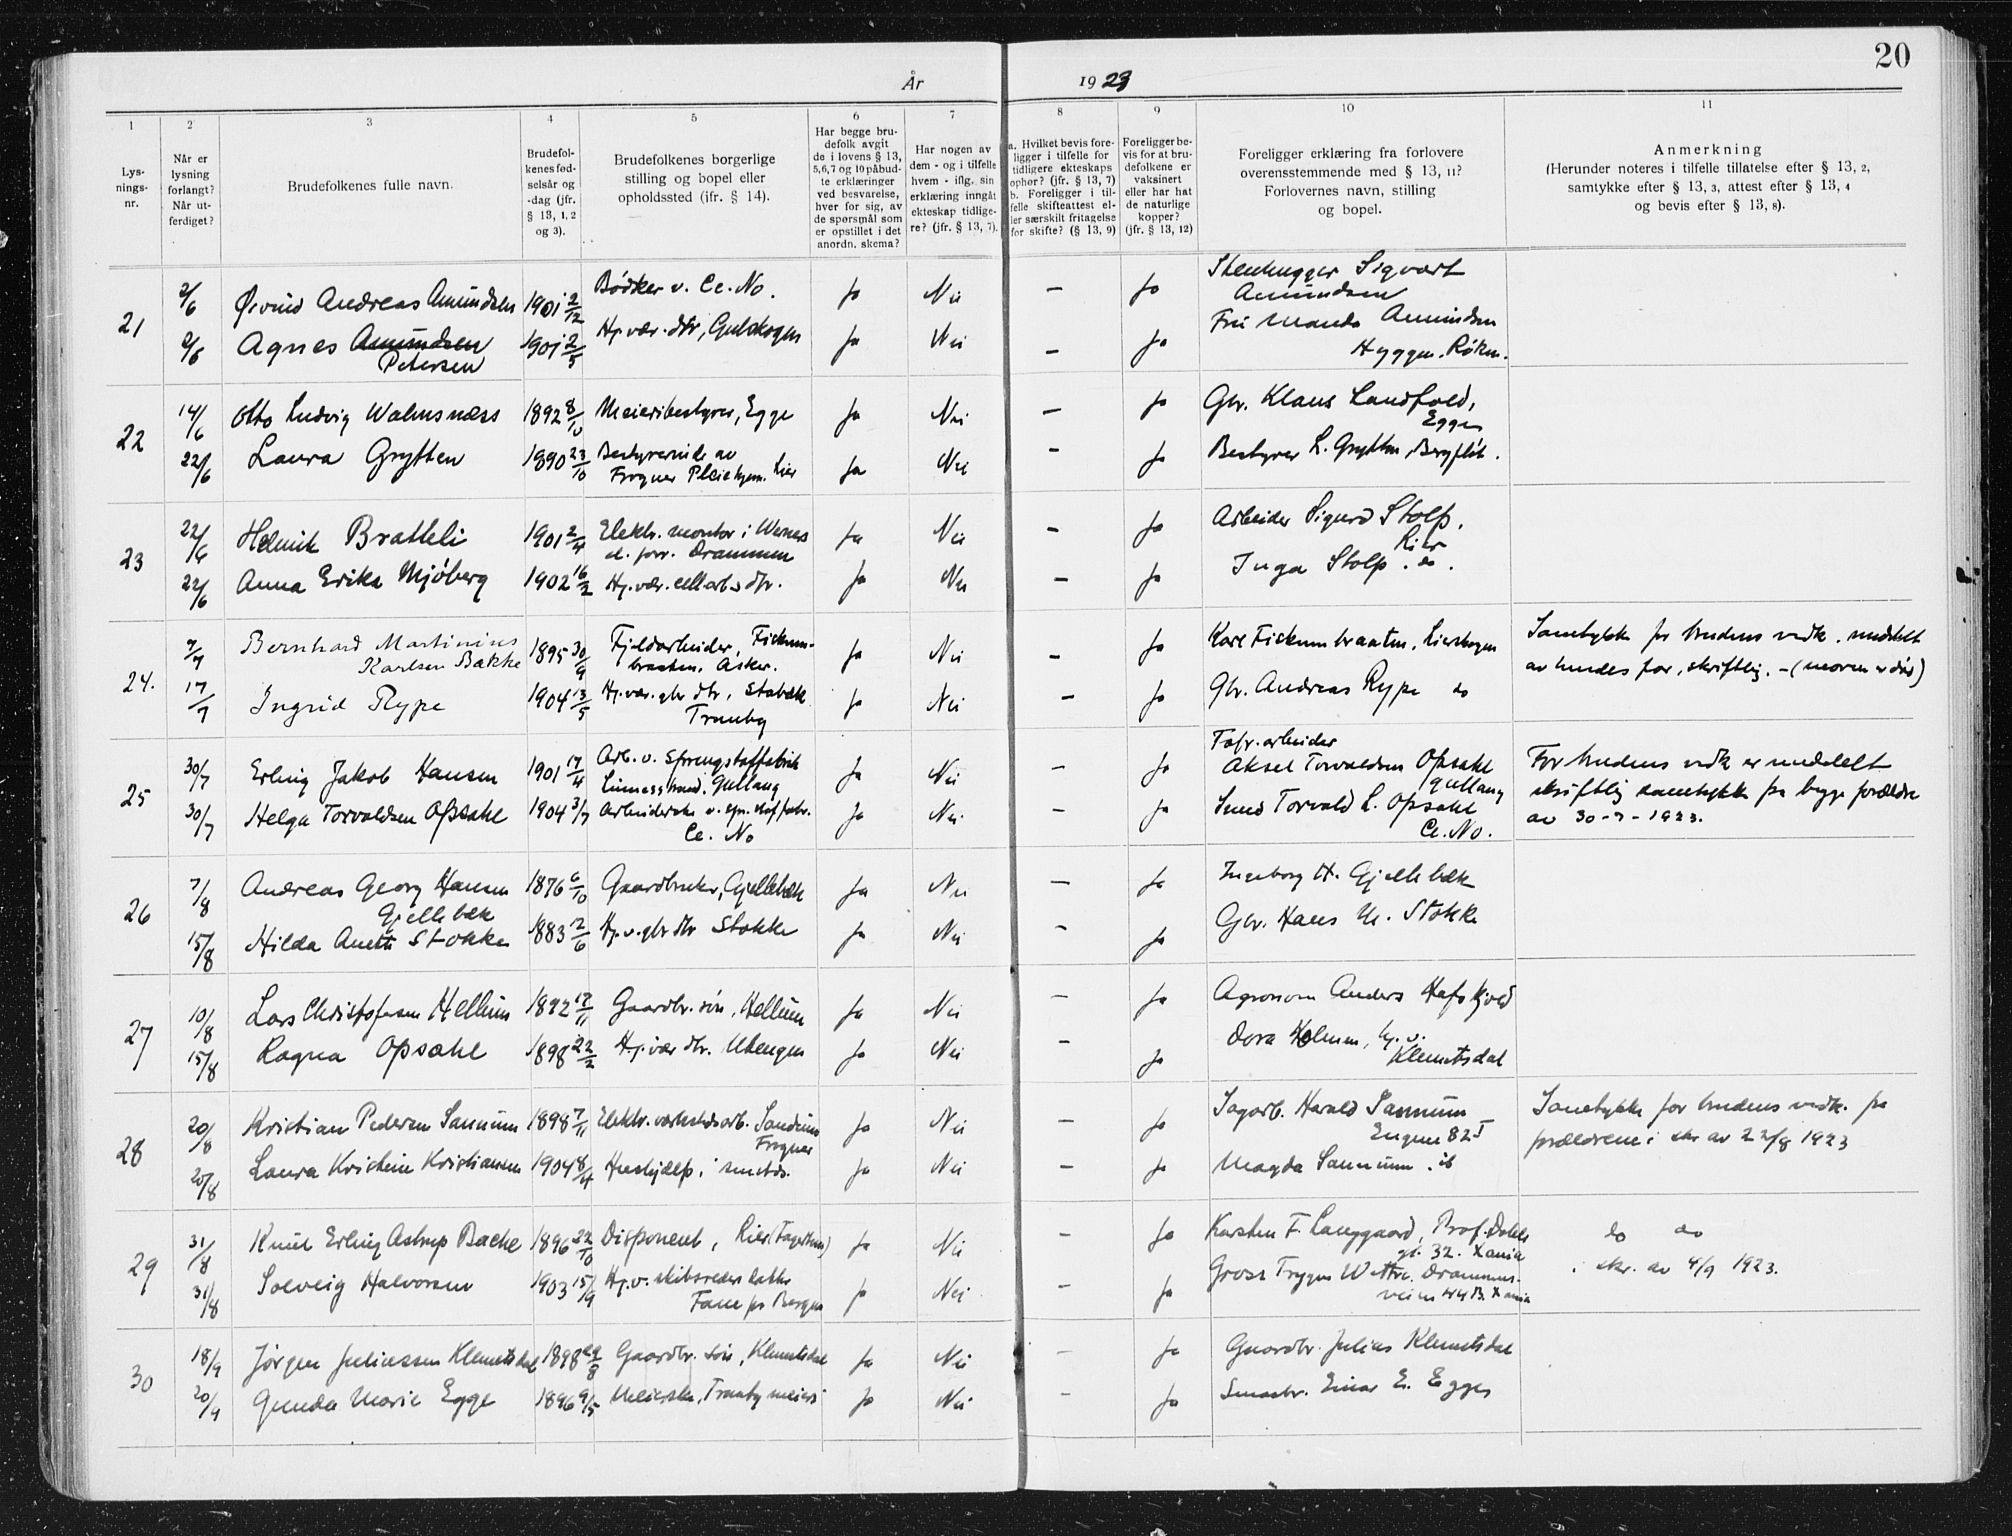 20
År 1923
1 2 3 4 5 6 7 8 9 10 11
Lys-
nings-
nr.
Når er
lysning
forlangt?
Når ut-
ferdiget?
Brudefolkenes fulle navn.
Brudefol-
kenes fød-
selsår og
-dag (jfr.
§ 13, 1, 2
og 3).
Brudefolkenes borgerlige
stilling og bopel eller
opholdssted (jfr. § 14).
Har begge bru-
defolk avgit
de i lovens § 13,
5, 6, 7 og 10 påbud-
te erklæringer
ved besvarelse,
hver for sig, av
de spørsmål som
er opstillet i det
anordn. skema?
Har nogen av
dem - og i tilfelle
hvem - iflg. sin
erklæring inngåt
ekteskap tidlige-
re? (jfr. § 13, 7).
a. Hvilket bevis fore-
ligger i tilfelle for
tidligere ekteskaps
ophør? (jfr. § 13, 7)
b. Foreligger i til-
felle skifteattest el-
ler særskilt fritagelse
for skifte? (§ 13, 9)
Foreligger be-
vis for at bru-
defolkene er
vaksinert
eller har hat
de naturlige
kopper?
(jfr. § 13, 12)
Foreligger erklæring fra forlovere
overensstemmende med § 13, 11?
Forlovernes navn, stilling
og bopel.
Anmerkning
(Herunder noteres i tilfelle tillatelse efter § 13, 2,
samtykke efter § 13, 3, attest efter § 13, 4
og bevis efter § 13, 8).
21 2/6 Øivind Andreas Amundsen 1901 2/12 Bödker v. Ce. No. Ja Nei — Ja Stenhugger Sigvart
Amundsen
2/6 Agnes Amundsen 1901 2/5 Hj. vær. dtr, Gulskogen Ja Nei — Ja Fru Wanda Amundsen
Petersen
Hyggen. Røken.
22 14/6 Otto Ludvig Walmsnæss 1892 8/10 Meieribestyrer, Egge Ja Nei — Ja Gbr. Klaus Landfald,
Egge
22/6 Laura Grytten 1890 23/10 Bestyrerinde av Ja Nei — Ja Bestyrer L. Grytten, Bergflöt.
Frogner Pleiehjem. Lier
23 22/6 Helmik Bratteli 1901 2/4 Elektr. montør i Wernes Ja Nei — Ja Arbeider Sigurd Stolp,
el. forr. Drammen
Lier
22/6 Anna Erika Mjöberg 1902 16/2 Hj. vær. cell arb.s dtr. Ja Nei — Ja Inga Stolp. do.
24. 7/7 Bernhard Martinius 1895 30/9 Fjeldarbeider, Fiskum- Ja Nei — Ja Karl Fiskumbraaten, Lierskogen Samtykke for brudens vedk. meddelt
Karlsen Bakke braaten, Asker.
av hendes far, skriftlig. - (moren er död)
17/7 Ingrid Rype 1904 13/5 Hj. vær. gbr dtr, Stabæk Ja Nei — Ja Gbr. Andreas Rype do
Tranby
25 30/7 Erling Jakob Hansen 1901 17/4 Arb. v. Sprengstoffabrik Ja Nei — Ja Fabr. arbeider
Linnesstrand, Gullaug
Aksel Torvaldsen Opsahl
Gullaug
For brudens vedk er meddelt
30/7 Helga Torvaldsen Opsahl 1904 3/7 Arbeiderske v. spr. stof fabr. Ja Nei — Ja Smed Torvald L. Opsahl
Ce. No Ce. No.
skriftlig samtykke fra begge forældre
av 30-7-1923.
26 7/8 Andreas Georg Hansen 1876 6/10 Gaardbruker, Gjellebæk Ja Nei — Ja Ingeborg H. Gjellebæk
Gjellebæk
15/8 Hilda Anette Stokke 1883 12/6 Hj. v. gbr dtr Stokke Ja Nei — Ja Gbr. Hans M. Stokke
27 10/8 Lars Christofersen Hellum 1892 17/11 Gaardbr. sön, Hellum Ja Nei — Ja Agronom Anders Hafskjold
15/8 Ragna Opsahl 1898 22/2 Hj. vær dtr. Uhengen Ja Nei — Ja Dora Holmen, hj. v.
Klemetsdal
28 20/8 Kristian Pedersen Sannum 1898 7/11 Elektr. verkstedsarb. Sandum Ja Nei — Ja Sagarb. Harald Sannum
Frogner
Engene 82 I
Samtykke for brudens vedk. fra
forældrene i skr av 22/8 1923
20/8 Laura Kristine Kristiansen 1904 8/4 Hushjælp i smstds. Ja Nei — Ja Magda Sannum. ib
29 31/8 Knut Erling Astrup Backe 1896 22/10 Disponent, Lier (Fagerheim) Ja Nei — Ja Karsten F. Langgaard, Prof. Dahls
gt. 32. Xania
do do
i skr. av 4/9 1923.
31/8 Solveig Halvorsen 1903 15/9 Hj. v. skibsreder datter Ja Nei — Ja Gross Trygve Wettre. Drammens-
Fane pr Bergen
veien 44 B. Xania
30 18/9 Jørgen Juliussen Klemetsdal 1898 29/8 Gaardbr. sön, Klemetsdal Ja Nei — Ja Gaardbr. Julius Klemetsdal
20/9 Gunda Marie Egge 1896 9/5 Meierske, Tranby meieri Ja Nei — Ja Smaabr. Einar E. Egge